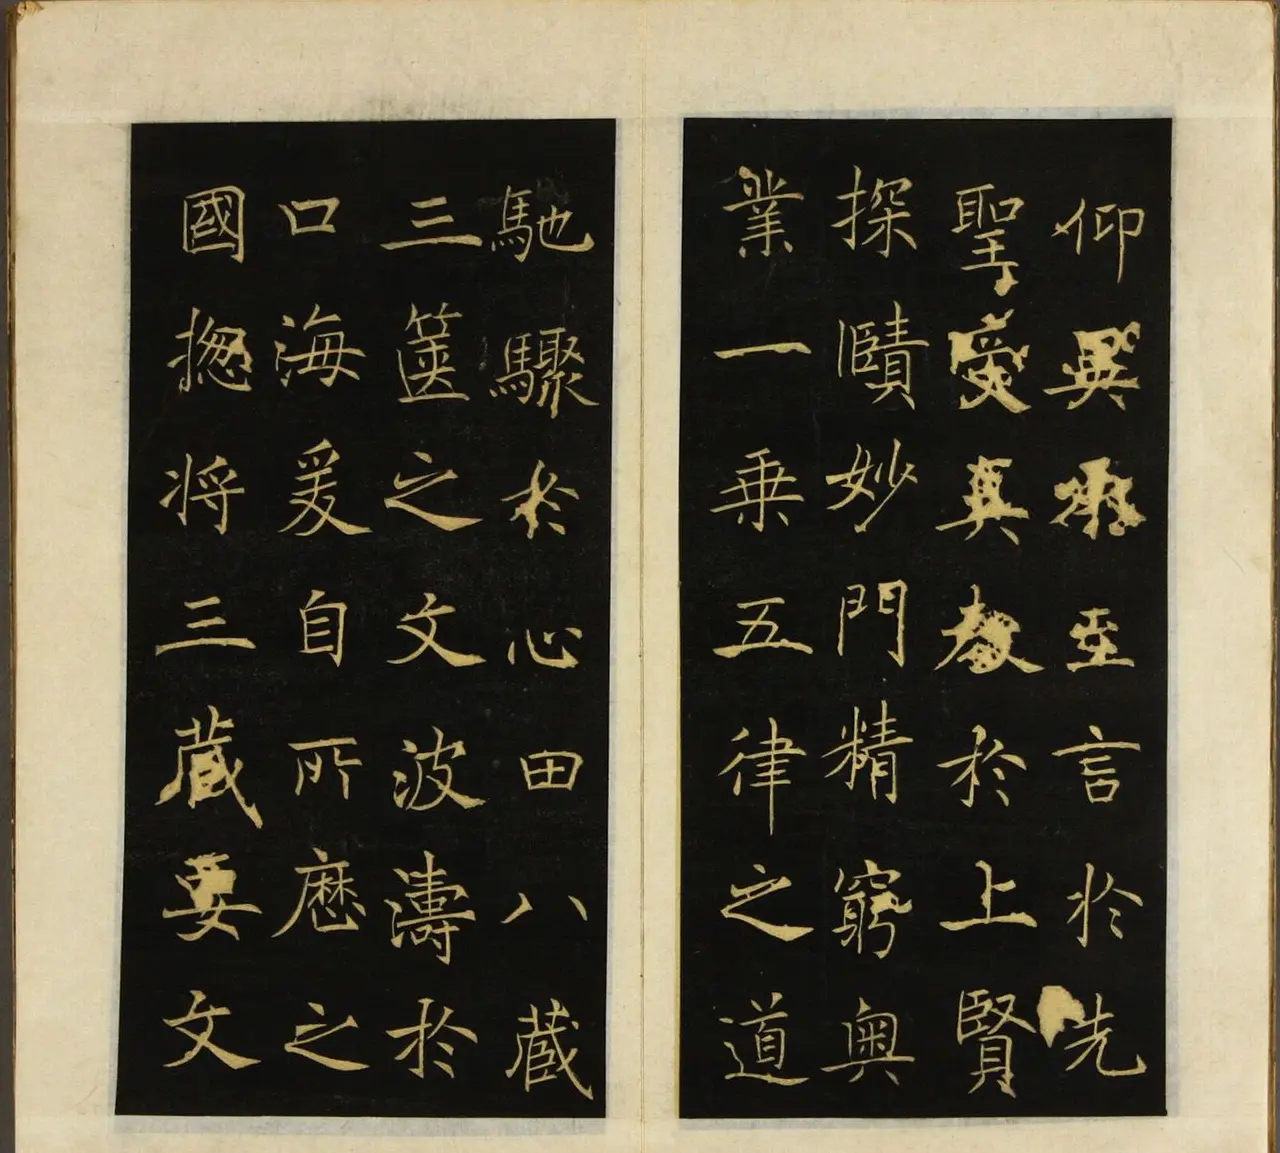 仰異承至言於先
聖受真教於上賢
探賾妙門精窮奧
業一乗五律之道
馳驟於心田八藏
三篋之文波濤於
口海爰自所歷之
國揔将三藏要文